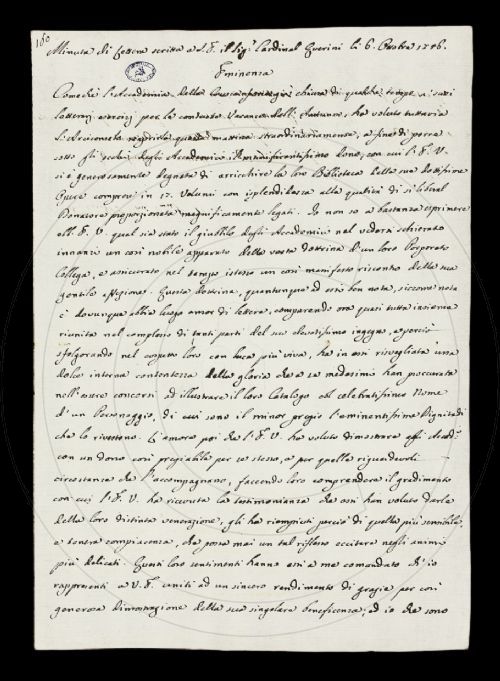 180
Minuta di lettera scritta a S. E. il Sig.r Cardinal Querini li 6. Ottobre 1746.
Eminenza
Comechè l'Accademia della Crusca chiusa di qualche tempo a' suoi
letterarj esercizj per le consuete Vacanze dell'Autunno, ha voluto tuttavia
l'Arciconsolo questa mattina straordinariamente, a fine di porre
sotto gli occhi degli Accademici il magnificentissimo dono, con cui l'E. V.
si è generosamente degnata di arricchire la loro Biblioteca delle sue dottissime
Opere compresi in 17. Volumi con isplendidezza alla qualità di sì liberal
Donatore proporzionata magnificamente legati. Io non so a bastanza esprimere
all'E. V. qual sia stato il giubbilo degli Accademici nel vedersi schierato
innanzi un così nobile apparato della vasta dottrina d'un loro Porporato
Collega, e assicurato nel tempo istesso un così manifesto riscontro della sua
gentile affezione. Questa dottrina, quantunque ad essi ben nota, siccome nota
è dovunque abbia luogo amor di lettere, comparendo ora quasi tutta insieme
riunita nel complesso di tanti parti del suo elevatissimo ingegno, e perciò
sfolgorando nel cospetto loro con luce più viva, ha in essi risvegliata una
dolce interna contentezza della gloria che a se medesimi han procurata
nell'essere concorsi ad illustrare il loro Catalogo col celebratissimo Nome
d'un Personaggio, di cui sono il minor pregio l'eminentissime Dignitadi
che lo rivestono. L'amore poi che l'E. V. ha voluto dimostrare agli Accad.i
con un dono così pregiabile per se stesso, e per quelle riguardevoli
circostanze che l'accompagnano, facendo loro comprendere il gradimento
con cui l'E. V. ha ricevuta la testimonianza che essi han voluto darle
della loro distinta venerazione, gli ha riempiuti perciò di quella più sensibile,
e tenera compiacenza, che possa mai un tal riflesso eccitare negli animi
più delicati. Questi loro sentimenti hanno essi a me comandato ch'io
rappresenti a V. E. uniti ad un sincero rendimento di grazie per così
generosa dimostrazione della sua singolare beneficenza; ed io che sono